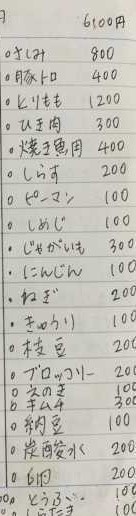 円 6100円
○さしみ 800
○豚トロ 400
○とりもも 1200
○ひき肉 300
○焼き魚用 400
○しらす 200
○ピーマン 100
○しめじ 100
・じゃがいも 300
・にんじん 100
・ねぎ 200
・きゅうり 100
○枝豆 200
○ブロッコリー 200
○えのき 100
○キムチ 300
○納豆 100
○炭酸水 200
○卵 200
○とうふ 100
しらたき 100